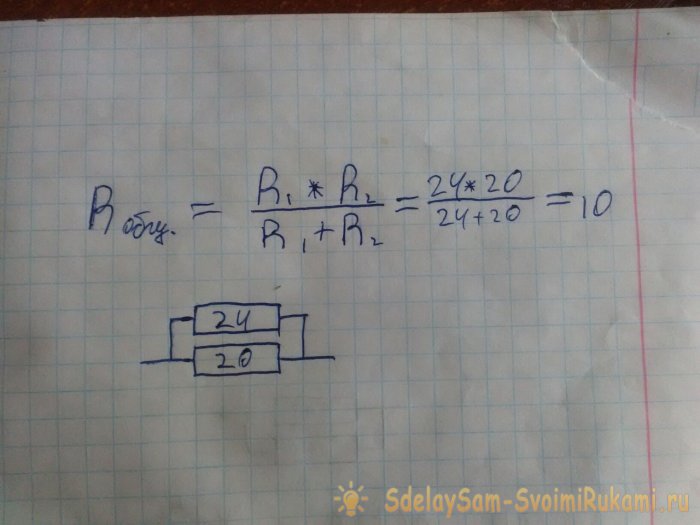 R общ. = R₁ * R₂ / R₁ + R₂ = 24 * 20 / 24 + 20 = 10
24
20
SdelaySam-SvoimiRukami.ru